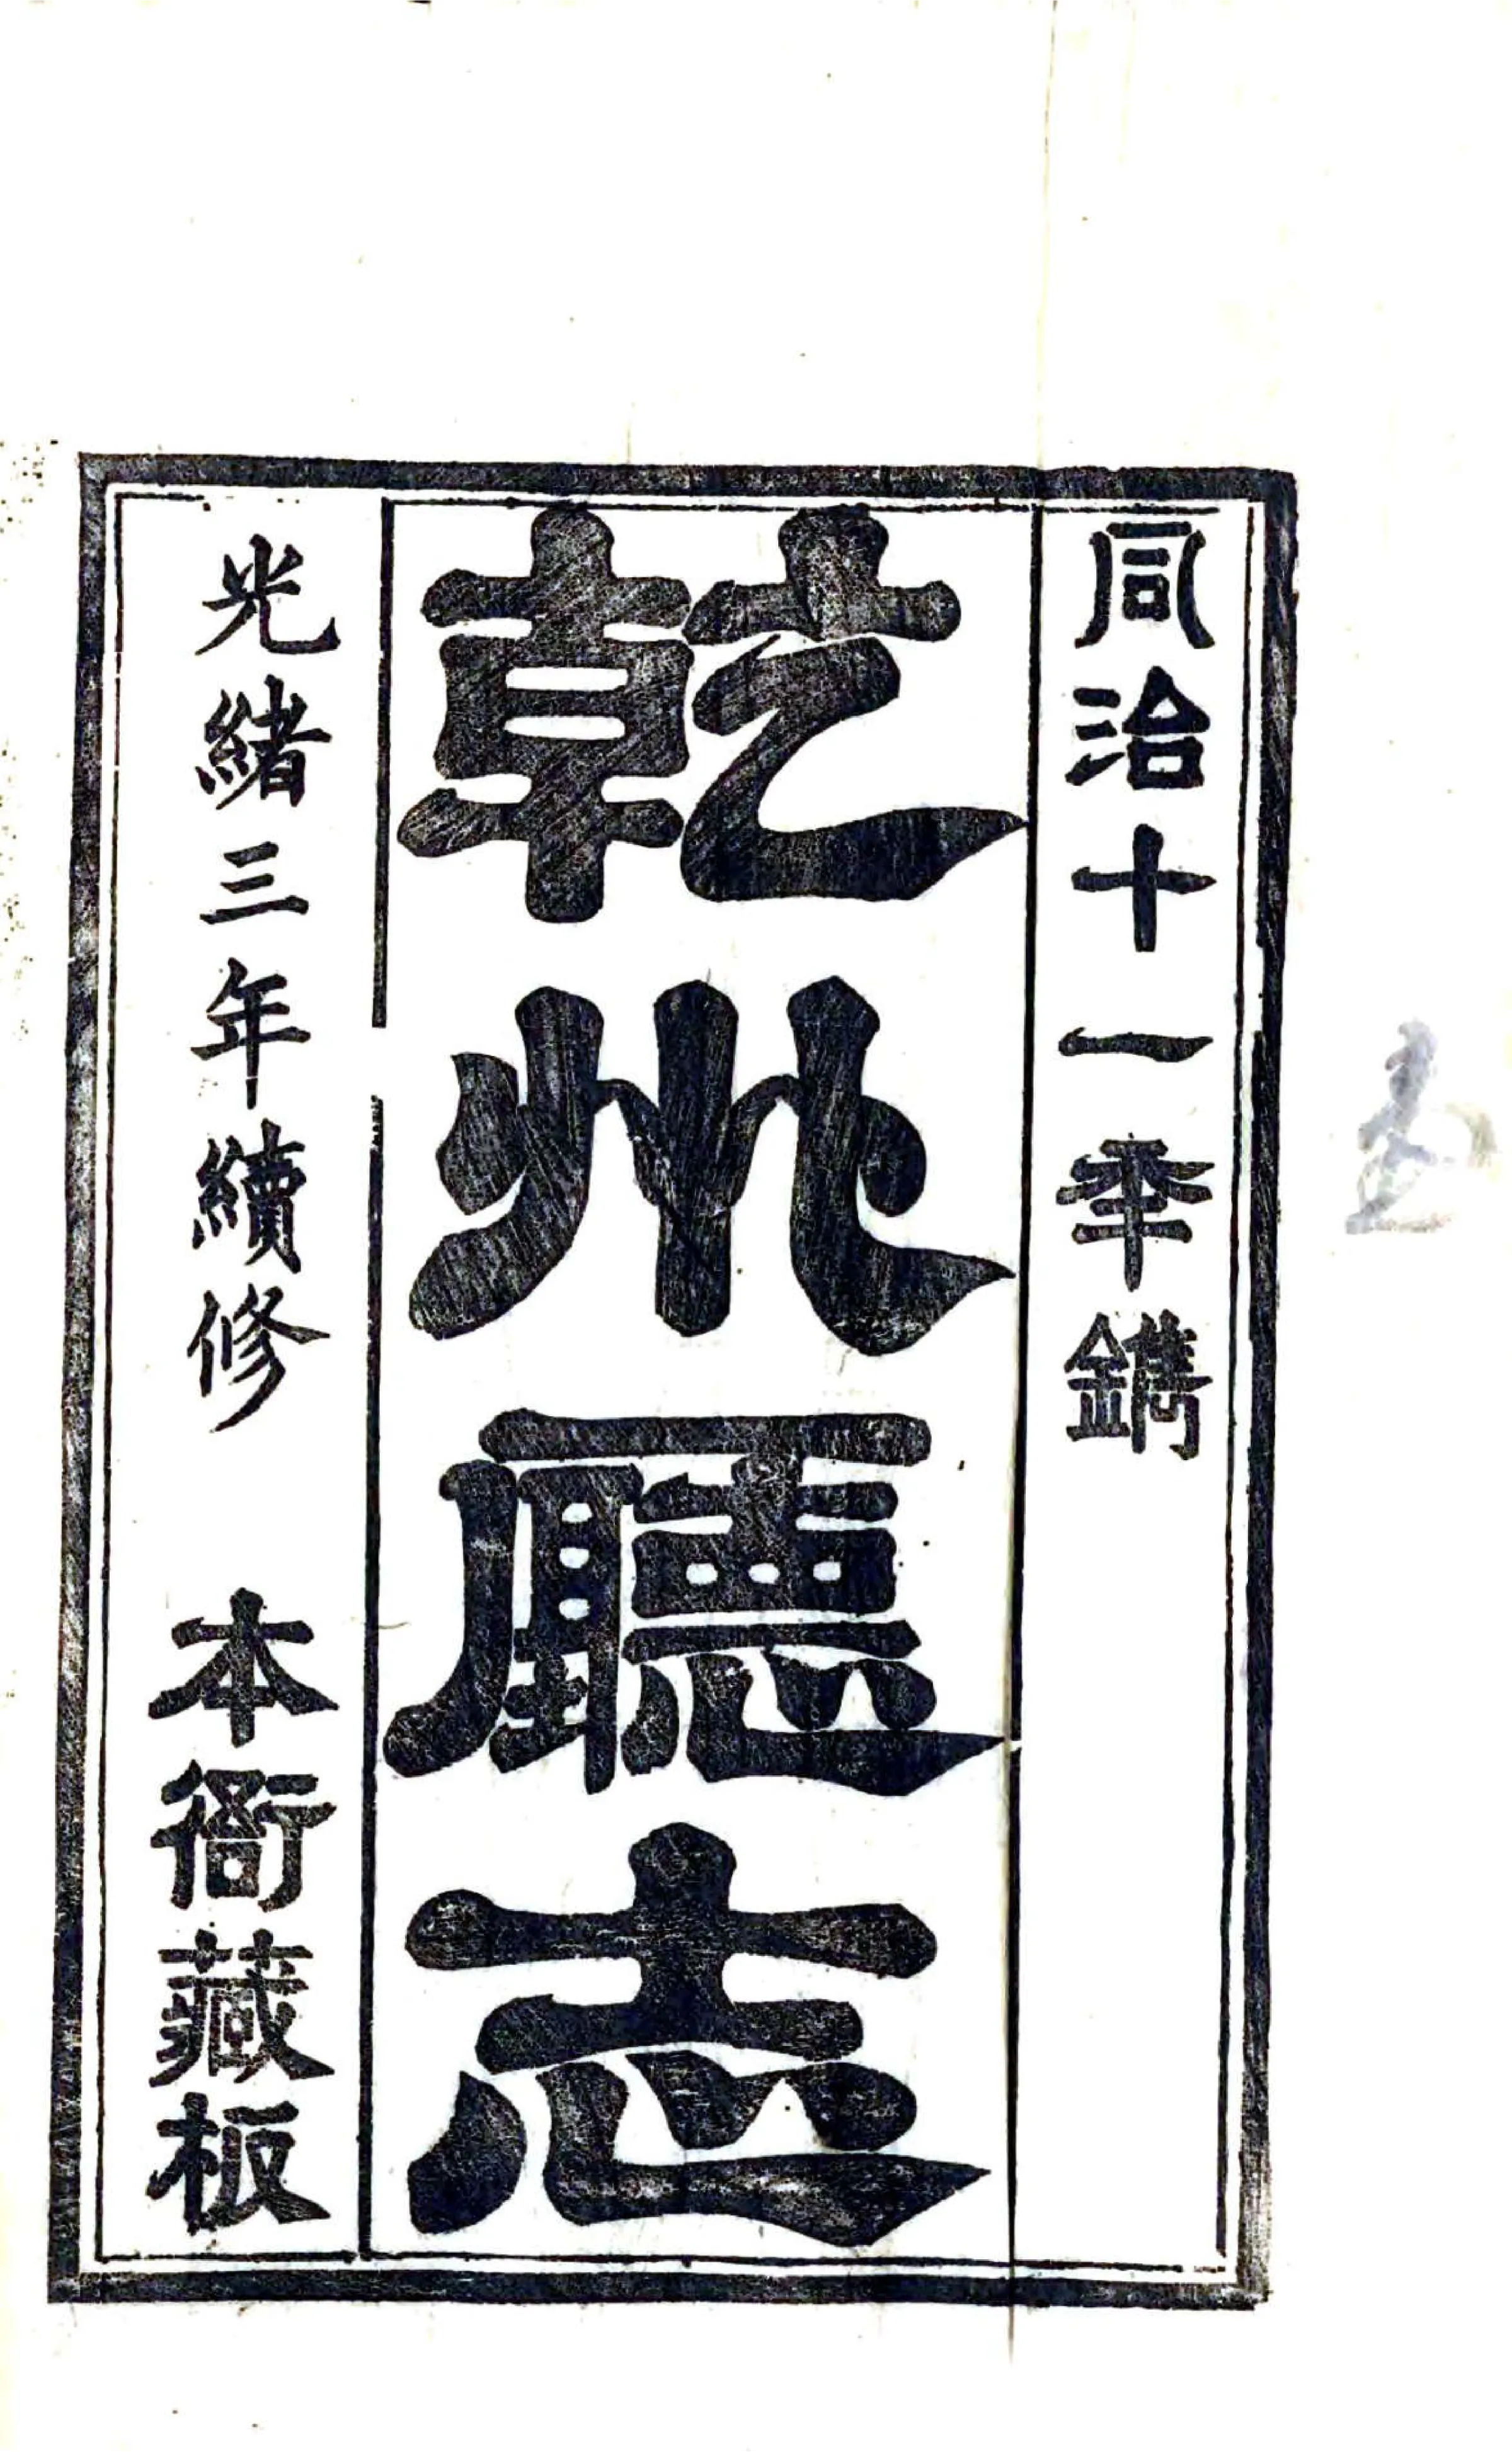 同治十一秊鐫
乾州廳志
光緒三年續修　本衙藏板